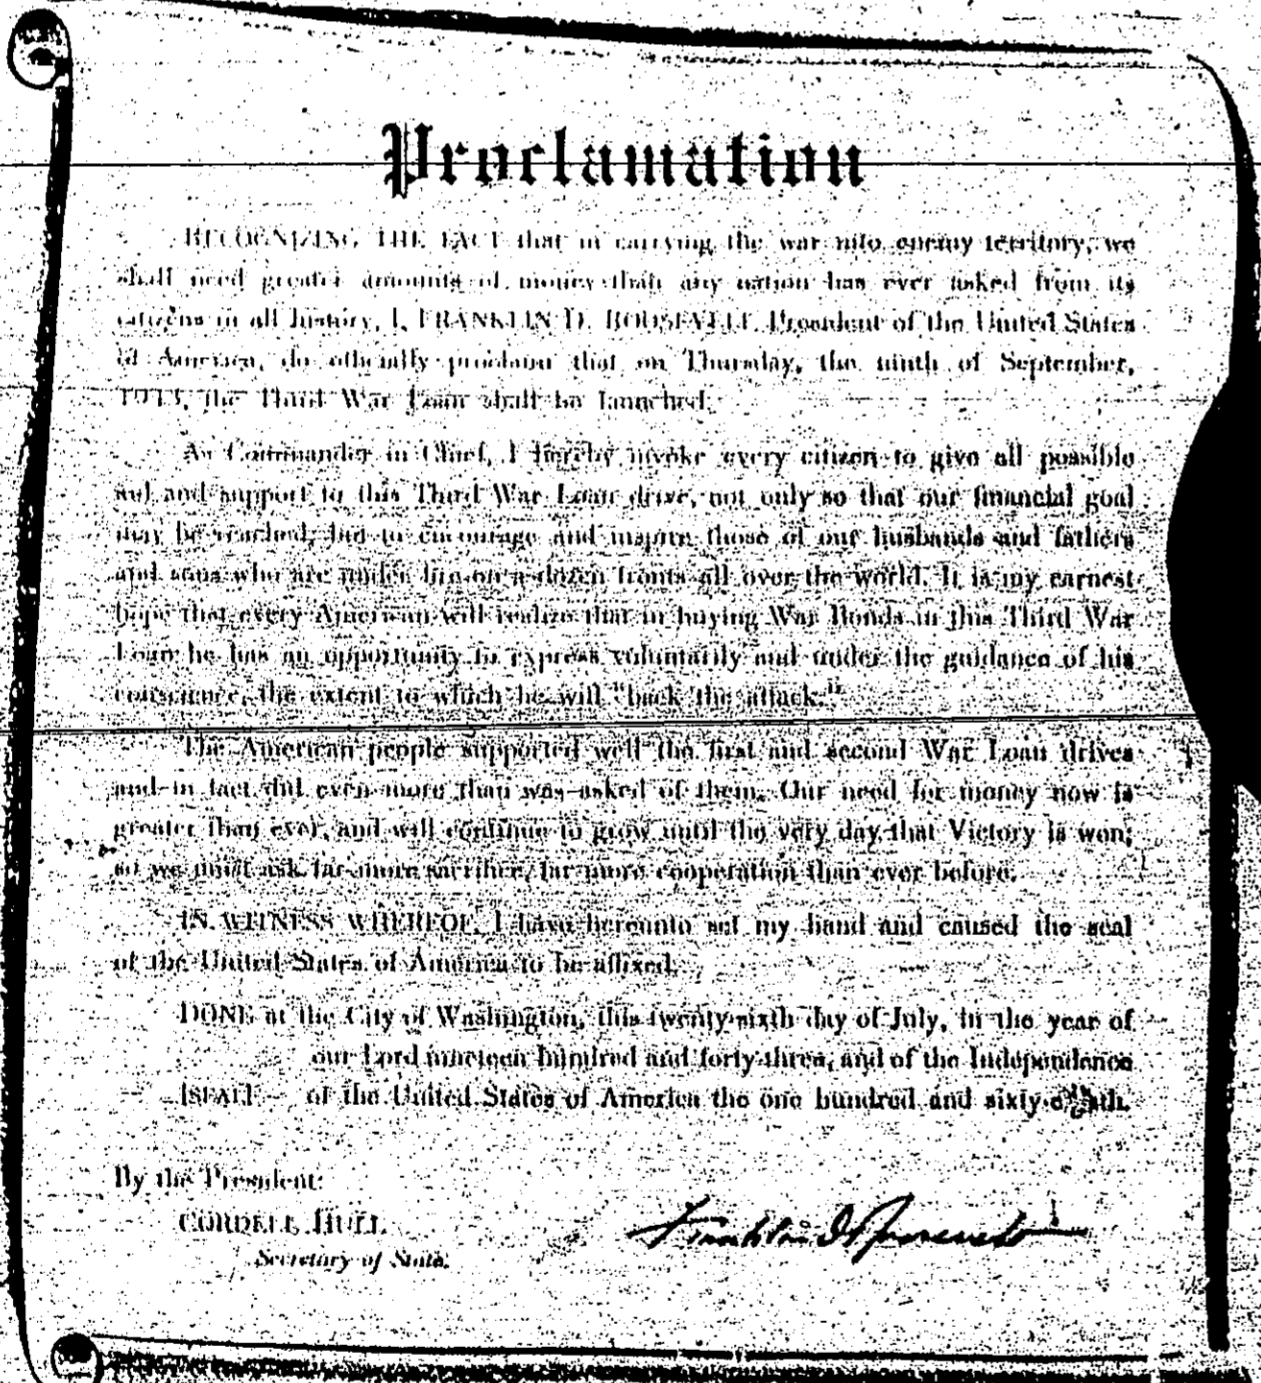 Proclamation
RECOGNIZING THE FACT that in carrying the war into enemy territory, we
shall need greater amounts of money than any nation has ever asked from its
citizens in all history, I, FRANKLIN D. ROOSEVELT, President of the United States
of America, do officially proclaim that on Thursday, the ninth of September,
1943, the Third War Loan shall be launched.
As Commander in Chief, I hereby invoke every citizen to give all possible
aid and support to this Third War Loan drive, not only so that our financial goal
may be reached, but to encourage and inspire those of our husbands and fathers
and sons who are under fire on a dozen fronts all over the world. It is my earnest
hope that every American will realize that in buying War Bonds in this Third War
Loan he has an opportunity to express voluntarily and under the guidance of his
conscience, the extent to which he will "back the attack."
The American people supported well the first and second War Loan drives
and in fact did even more than was asked of them. Our need for money now is
greater than ever, and will continue to grow until the very day that Victory is won;
so we must ask far more sacrifice, far more cooperation than ever before.
IN WITNESS WHEREOF, I have hereunto set my hand and caused the seal
of the United States of America to be affixed.
DONE at the City of Washington, this twenty-sixth day of July, in the year of
our Lord nineteen hundred and forty-three, and of the Independence
[SEAL] of the United States of America the one hundred and sixty-eighth.
By the President:
CORDELL HULL.
Secretary of State.
Franklin D Roosevelt